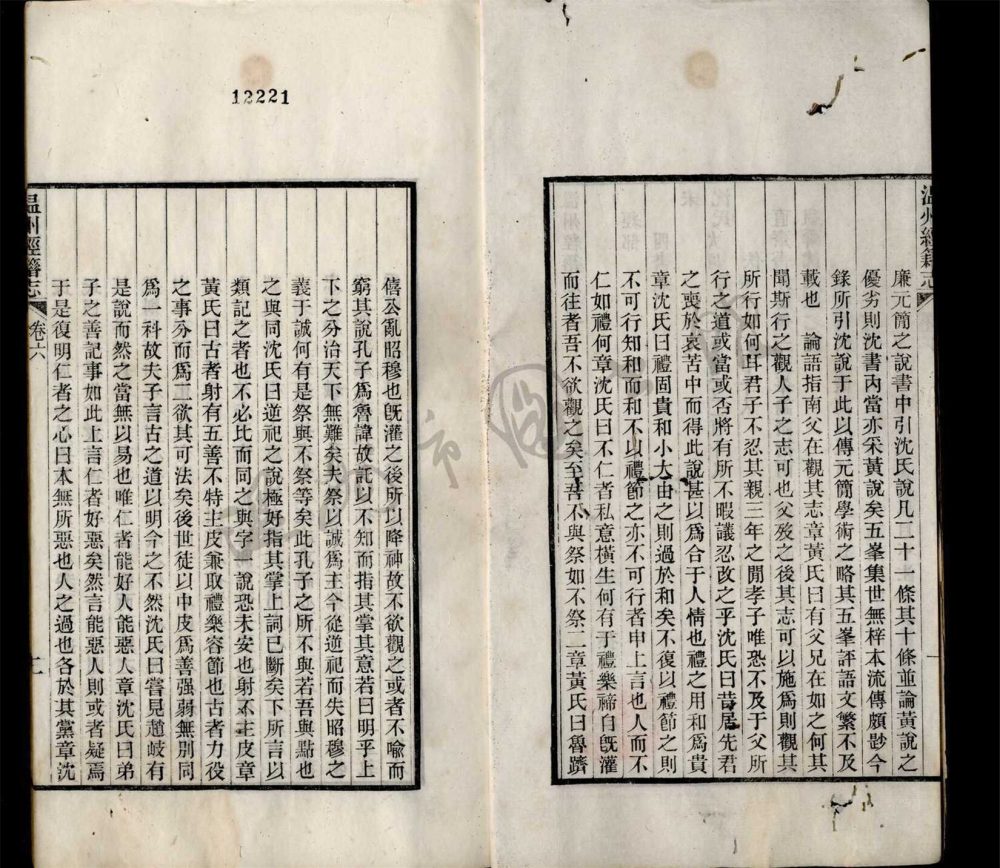 廉元簡之說書中引沈氏說凡二十一條其十條並論黃說之
優劣則沈書內當亦采黃說矣五峯集世無梓本流傳頗尟今
錄所引沈說于此以傳元簡學術之略其五峯評語文繁不及
載也 論語指南父在觀其志章黃氏曰有父兄在如之何其
聞斯行之觀人子之志可也父歿之後其志可以施爲則觀其
所行如何耳君子不忍其親三年之閒孝子唯恐不及于父所
行之道或當或否將有所不暇議忍改之乎沈氏曰昔居先君
之喪於哀苦中而得此說甚以爲合于人情也禮之用和爲貴
章沈氏曰禮固貴和小大由之則過於和矣不復以禮節之則
不可行知和而和不以禮節之亦不可行者申上言也人而不
仁如禮何章沈氏曰不仁者私意橫生何有于禮樂禘自旣灌
而往者吾不欲觀之矣至吾不與祭如不祭二章黃氏曰魯躋
溫州經籍志
一
12221
僖公亂昭穆也旣灌之後所以降神故不欲觀之或者不喩而
窮其說孔子爲魯諱故託以不知而指其掌其意若曰明乎上
下之分治天下無難矣夫祭以誠爲主今從逆祀而失昭穆之
義于誠何有是祭與不祭等矣此孔子之所不與若吾與點也
之與同沈氏曰逆祀之說極好指其掌上詞已斷矣下所言以
類記之者也不必比而同之與字一說恐未安也射不主皮章
黃氏曰古者射有五善不特主皮兼取禮樂容節也古者力役
之事分而爲二欲其可法矣後世徒以中皮爲善强弱無別同
爲一科故夫子言古之道以明今之不然沈氏曰嘗見趙岐有
是說而然之當無以易也唯仁者能好人能惡人章沈氏曰弟
子之善記事如此上言仁者好惡矣然言能惡人則或者疑焉
于是復明仁者之心曰本無所惡也人之過也各於其黨章沈
溫州經籍志
卷六
二